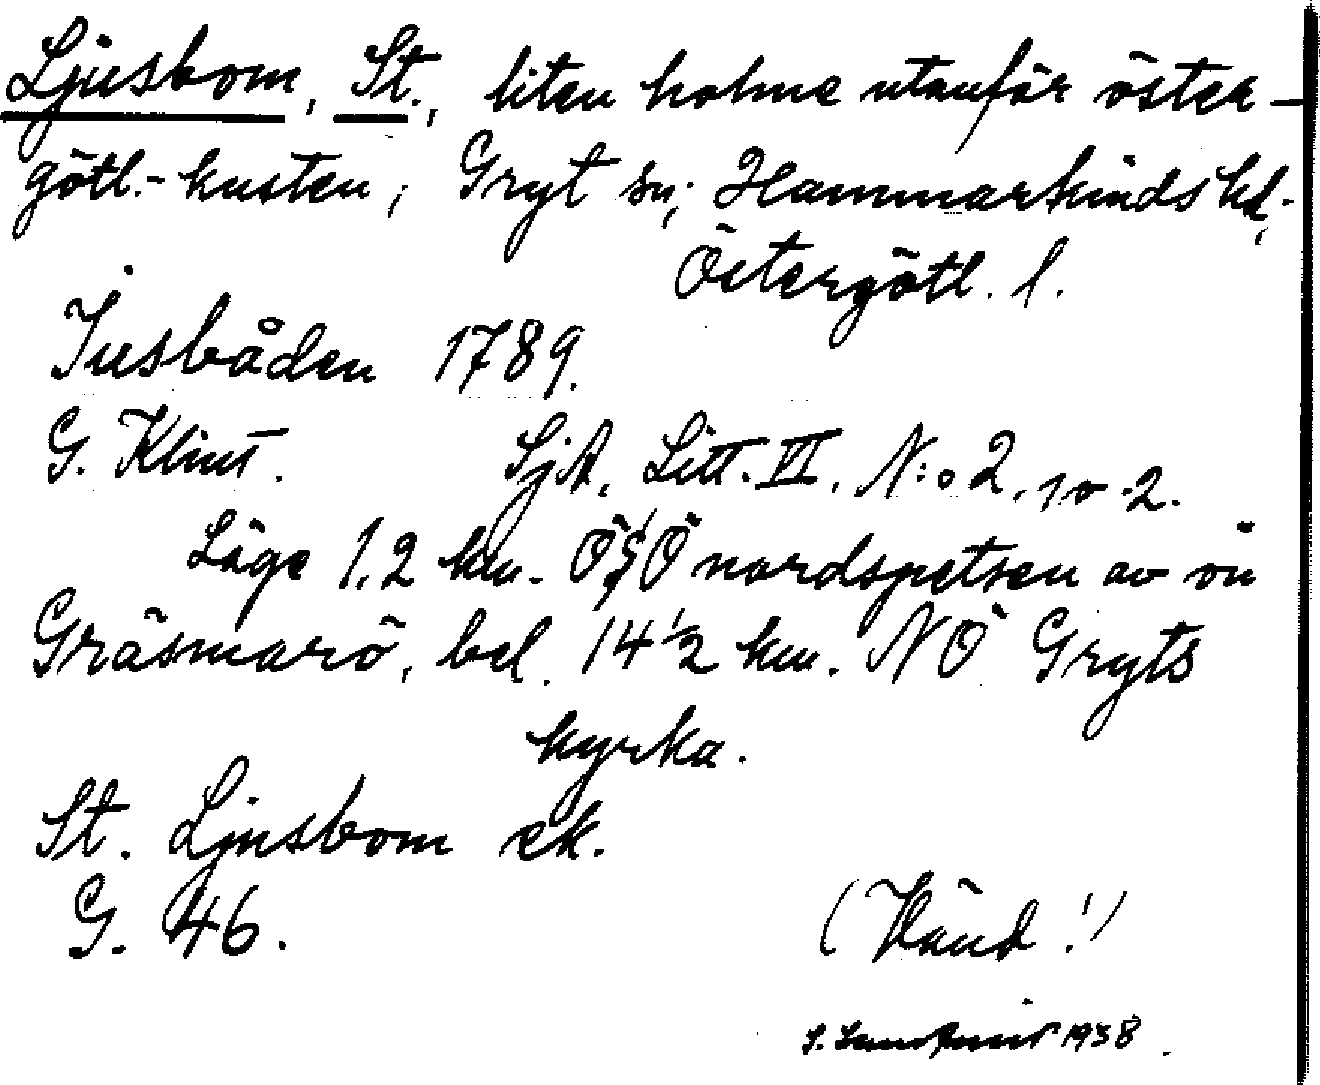 Ljusbom, St., liten holme utanför öster-
götl.-kusten, Gryt sn; Hammarkinds hd,
Östergötl. l.
Jusbåden 1789.
G. Klint. SjA, Litt. VI, N:o 2, 10.2.
Läge 1,2 km. ÖSÖ nordspetsen av ön
Gräsmarö, bel. 14½ km. NÖ Gryts
kyrka.
St. Ljusbom ek.
G. 46.
(Vänd!)
1938